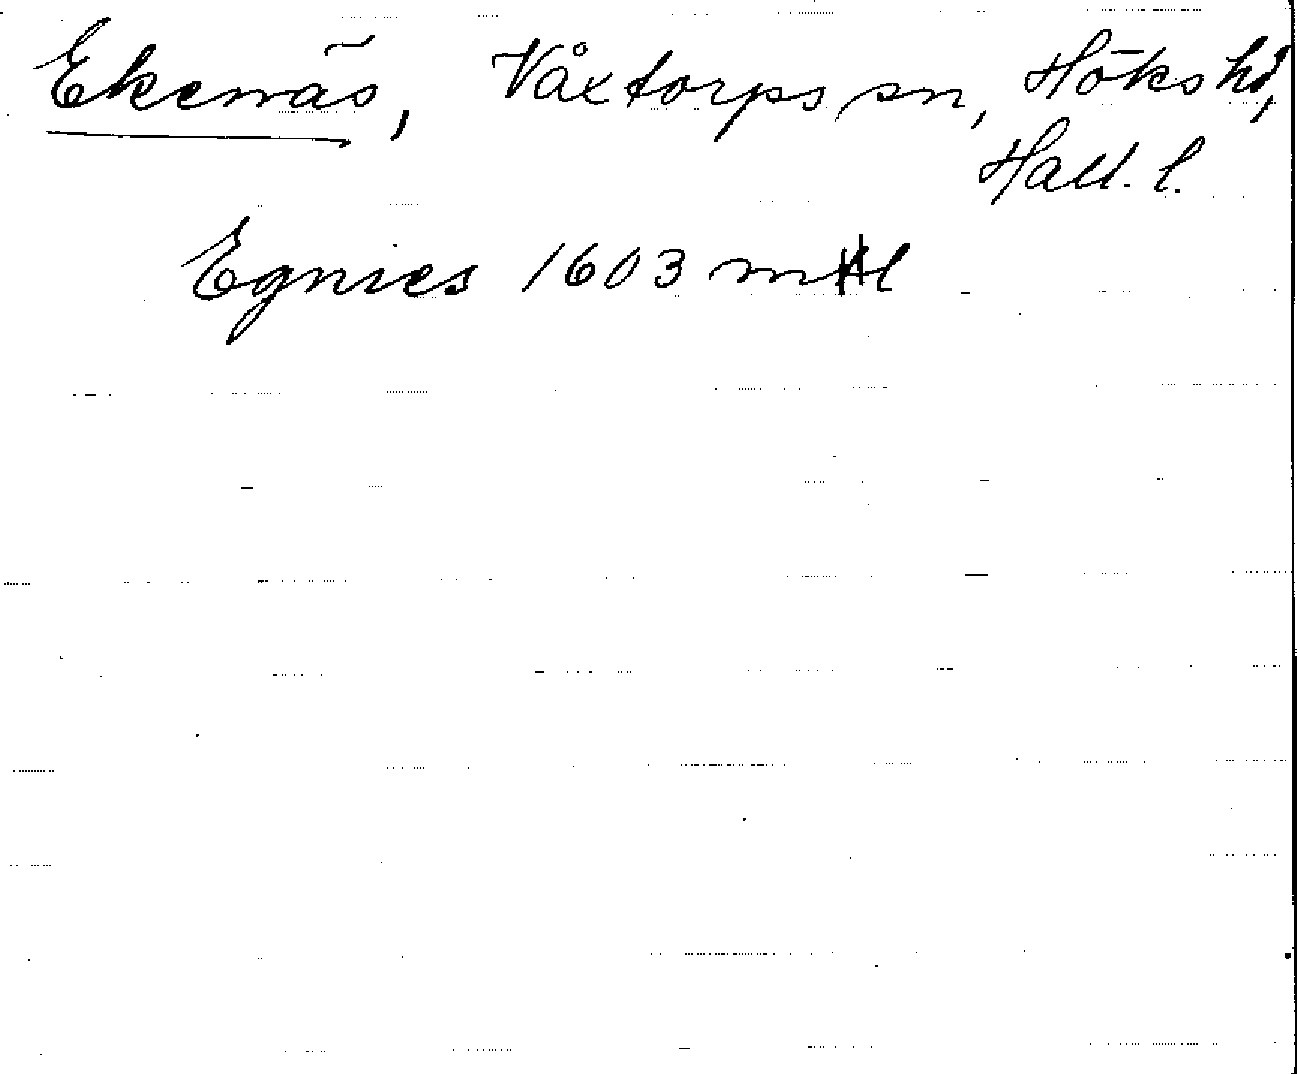 Ekenäs, Våxtorps sn, Höks hd,
Hall. l.
Egnies 1603 m